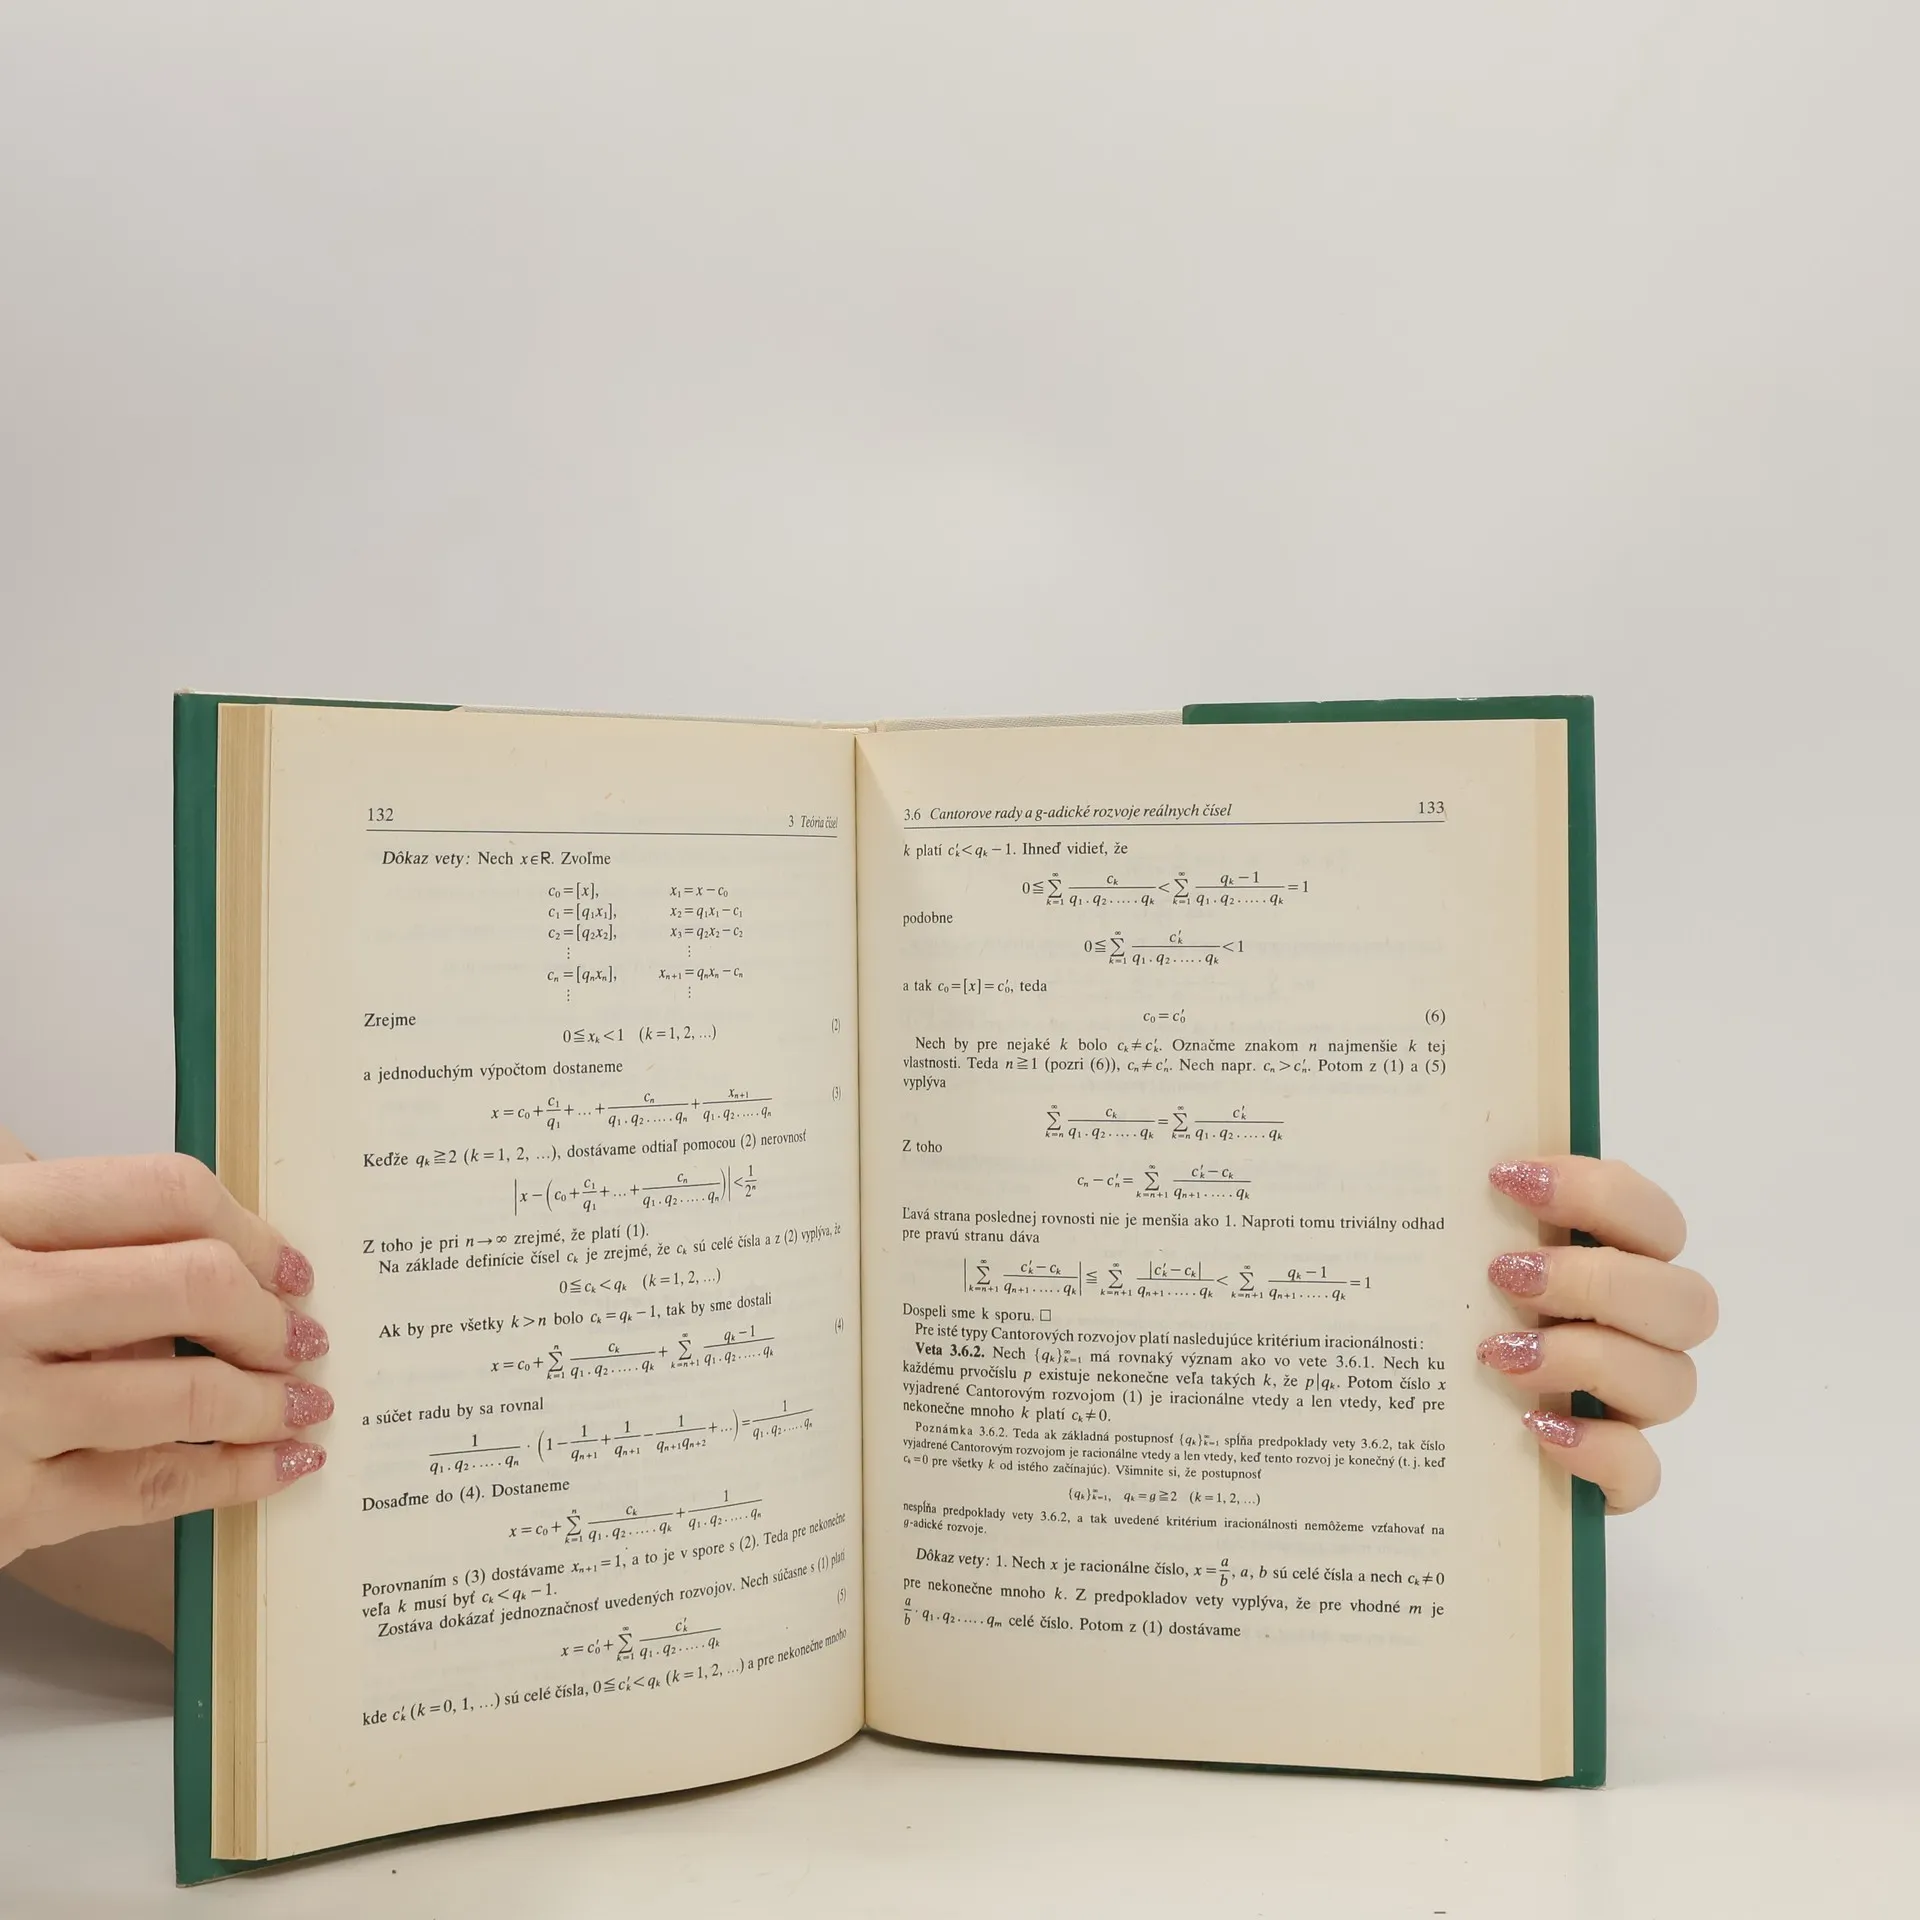 132
3 Teória čísel
Dôkaz vety: Nech x∈R. Zvoľme
c₀=[x], x₁=x−c₀
c₁=[q₁x₁], x₂=q₁x₁−c₁
c₂=[q₂x₂], x₃=q₂x₂−c₂
⋮ ⋮
cₙ=[qₙxₙ], xₙ₊₁=qₙxₙ−cₙ
⋮ ⋮
Zrejme
0≦xₖ<1 (k=1,2,...) (2)
a jednoduchým výpočtom dostaneme
x=c₀+c₁/q₁+...+cₙ/(q₁.q₂.....qₙ)+xₙ₊₁/(q₁.q₂.....qₙ) (3)
Keďže qₖ≧2 (k=1, 2, ...), dostávame odtiaľ pomocou (2) nerovnosť
|x−(c₀+c₁/q₁+...+cₙ/(q₁.q₂.....qₙ))|<1/2ⁿ
Z toho je pri n→∞ zrejmé, že platí (1).
Na základe definície čísel cₖ je zrejmé, že cₖ sú celé čísla a z (2) vyplýva, že
0≦cₖ<qₖ (k=1,2,...)
Ak by pre všetky k>n bolo cₖ=qₖ−1, tak by sme dostali
x=c₀+∑ₖ₌₁ⁿ cₖ/(q₁.q₂.....qₖ)+∑ₖ₌ₙ₊₁^∞ (qₖ−1)/(q₁.q₂.....qₖ) (4)
a súčet radu by sa rovnal
1/(q₁.q₂.....qₙ)·(1−1/qₙ₊₁+1/qₙ₊₁−1/(qₙ₊₁qₙ₊₂)+...)=1/(q₁.q₂.....qₙ)
Dosaďme do (4). Dostaneme
x=c₀+∑ₖ₌₁ⁿ cₖ/(q₁.q₂.....qₖ)+1/(q₁.q₂.....qₙ)
Porovnaním s (3) dostávame xₙ₊₁=1, a to je v spore s (2). Teda pre nekonečne
veľa k musí byť cₖ<qₖ−1.
Zostáva dokázať jednoznačnosť uvedených rozvojov. Nech súčasne s (1) platí
x=c₀′+∑ₖ₌₁^∞ cₖ′/(q₁.q₂.....qₖ) (5)
kde cₖ′ (k=0, 1, ...) sú celé čísla, 0≦cₖ′<qₖ (k=1, 2, ...) a pre nekonečne mnoho
3.6 Cantorove rady a g-adické rozvoje reálnych čísel 133
k platí cₖ′<qₖ−1. Ihneď vidieť, že
0≦∑ₖ₌₁^∞ cₖ/(q₁.q₂.....qₖ)<∑ₖ₌₁^∞ (qₖ−1)/(q₁.q₂.....qₖ)=1
podobne
0≦∑ₖ₌₁^∞ cₖ′/(q₁.q₂.....qₖ)<1
a tak c₀=[x]=c₀′, teda
c₀=c₀′ (6)
Nech by pre nejaké k bolo cₖ≠cₖ′. Označme znakom n najmenšie k tej
vlastnosti. Teda n≧1 (pozri (6)), cₙ≠cₙ′. Nech napr. cₙ>cₙ′. Potom z (1) a (5)
vyplýva
∑ₖ₌ₙ^∞ cₖ/(q₁.q₂.....qₖ)=∑ₖ₌ₙ^∞ cₖ′/(q₁.q₂.....qₖ)
Z toho
cₙ−cₙ′=∑ₖ₌ₙ₊₁^∞ (cₖ′−cₖ)/(qₙ₊₁.....qₖ)
Ľavá strana poslednej rovnosti nie je menšia ako 1. Naproti tomu triviálny odhad
pre pravú stranu dáva
|∑ₖ₌ₙ₊₁^∞ (cₖ′−cₖ)/(qₙ₊₁.....qₖ)|≦∑ₖ₌ₙ₊₁^∞ |cₖ′−cₖ|/(qₙ₊₁.....qₖ)<∑ₖ₌ₙ₊₁^∞ (qₖ−1)/(qₙ₊₁.....qₖ)=1
Dospeli sme k sporu. □
Pre isté typy Cantorových rozvojov platí nasledujúce kritérium iracionálnosti:
Veta 3.6.2. Nech {qₖ}ₖ₌₁^∞ má rovnaký význam ako vo vete 3.6.1. Nech ku
každému prvočíslu p existuje nekonečne veľa takých k, že p|qₖ. Potom číslo x
vyjadrené Cantorovým rozvojom (1) je iracionálne vtedy a len vtedy, keď pre
nekonečne mnoho k platí cₖ≠0.
Poznámka 3.6.2. Teda ak základná postupnosť {qₖ}ₖ₌₁^∞ spĺňa predpoklady vety 3.6.2, tak číslo
vyjadrené Cantorovým rozvojom je racionálne vtedy a len vtedy, keď tento rozvoj je konečný (t. j. keď
cₖ=0 pre všetky k od istého začínajúc). Všimnite si, že postupnosť
{qₖ}ₖ₌₁^∞, qₖ=g≧2 (k=1,2,...)
nespĺňa predpoklady vety 3.6.2, a tak uvedené kritérium iracionálnosti nemôžeme vzťahovať na
g-adické rozvoje.
Dôkaz vety: 1. Nech x je racionálne číslo, x=a/b, a, b sú celé čísla a nech cₖ≠0
pre nekonečne mnoho k. Z predpokladov vety vyplýva, že pre vhodné m je
a/b·q₁.q₂.....qₘ celé číslo. Potom z (1) dostávame